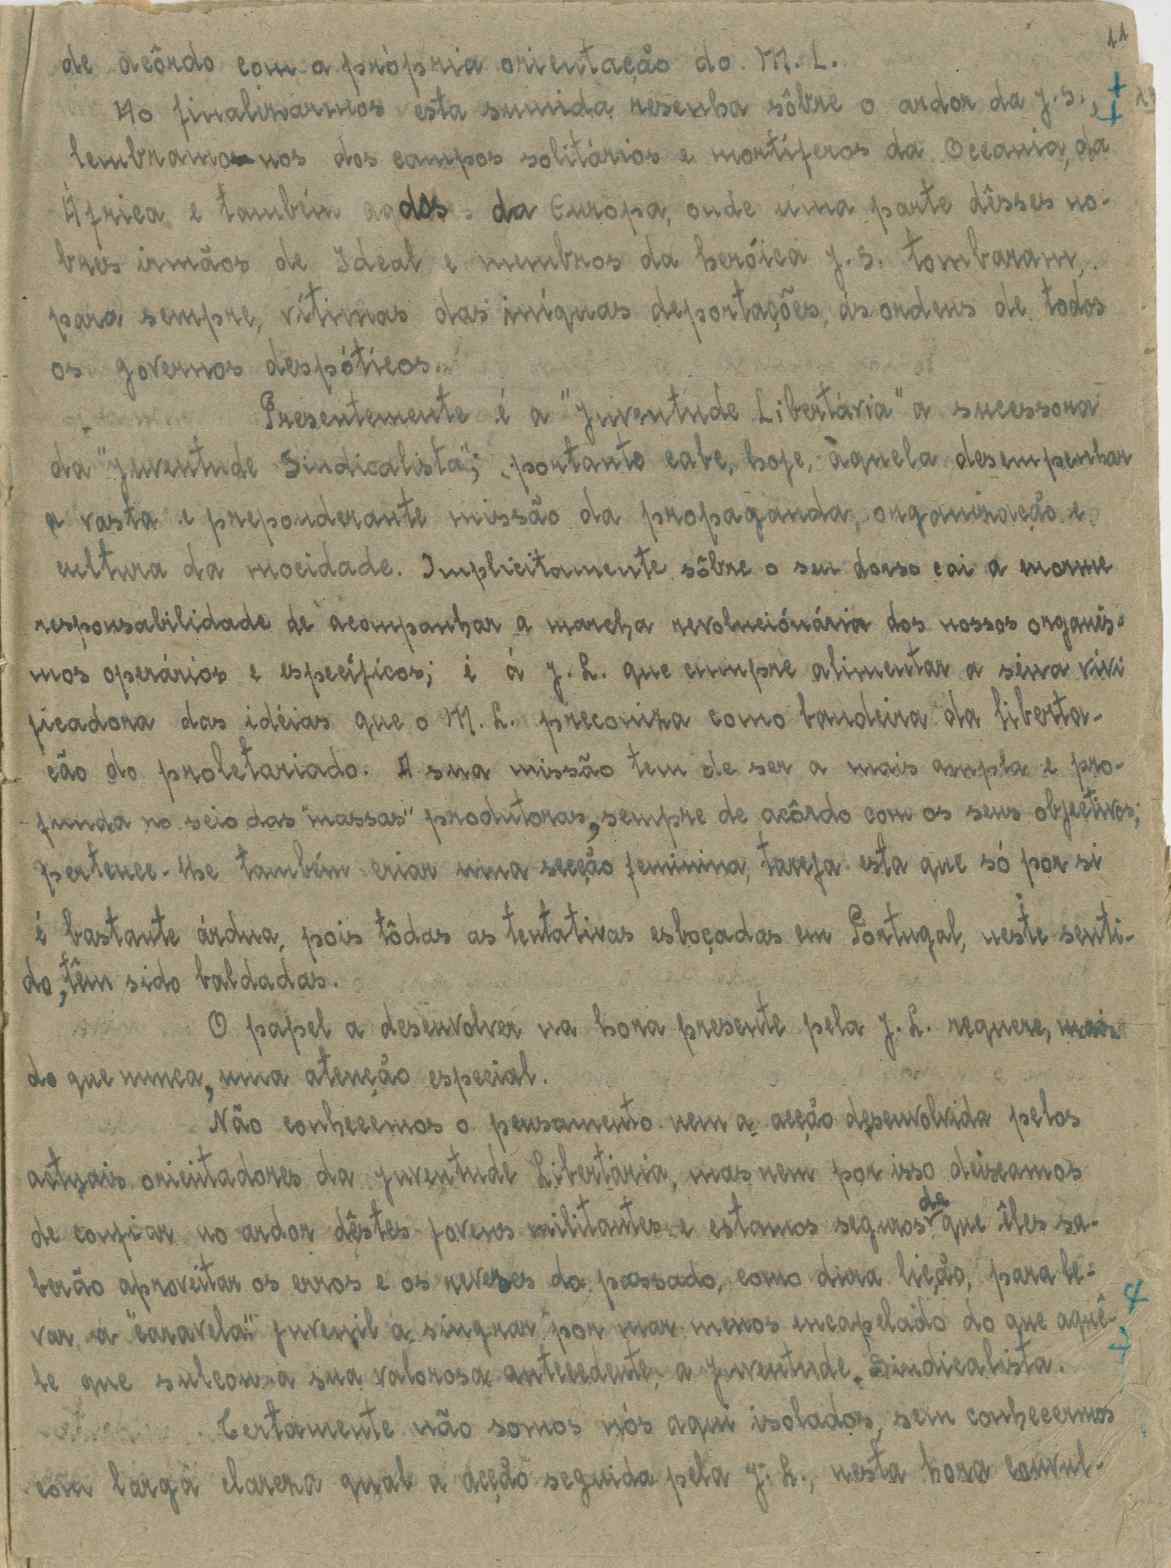 11
de acôrdo com a própria orientação do M. L.
Ao finalizarmos esta sumida resenha sôbre o ardor da J. S.,
lembramo-nos dos campos solitários e mortíferos da Oceania, da
África e também dos da Europa, onde uma parte dêsses no-
bres irmãos de Ideal e membros da heróica J. S. tombaram,
para sempre, vítimas das iníquas deportações, ás ordens de todos
os governos despóticos.
Presentemente é a "Juventude Libertária" a sucessora
da "Juventude Sindicalista"; portanto cabe, hoje, àquela desempenhar
a vasta e preponderante missão da propaganda, organização e
cultura da mocidade. Implicitamente sôbre o seu dorso cai a enorme
responsabilidade de acompanhar a marcha revolucionária dos nossos organis-
mos operários e específicos; é á J. L. que cumpre alimentar a seiva vivi
ficadora das idéias que o M. L. preconiza como bandeira da liberta-
ção do proletariado. A sua missão tem de ser a mais ampla e pro-
funda no seio das "massas" produtoras, sempre de acôrdo com os seus objectivos;
pertence-lhe também criar uma secção feminina, tarefa esta que só por si
é bastante árdua, pois tôdas as tentativas esboçadas em Portugal, neste senti-
do, têm sido baldadas.
O papel a desenvolver na hora presente pela J. L. requere, mais
do que nunca, uma atenção especial.
Não conhecemos o pensamento nem a acção desenvolvida pelos
actuais orientadores da Juventude Libertária, mas nem por isso deixamos
de confiar no ardor dêstes jovens militantes e estamos seguros de que êles sa-
berão aproveitar os erros e os reveses do passado, como dura lição, para le-
var a "caravela" juvenil a singrar por mar menos encapelado do que aquê-
le que sulcou a sua valorosa antecedente, a Juventude Sindicalista.
Certamente não somos nós aqui isolados, sem conhecermos
com larga clareza qual a acção seguida pela J. L., nesta hora convul-